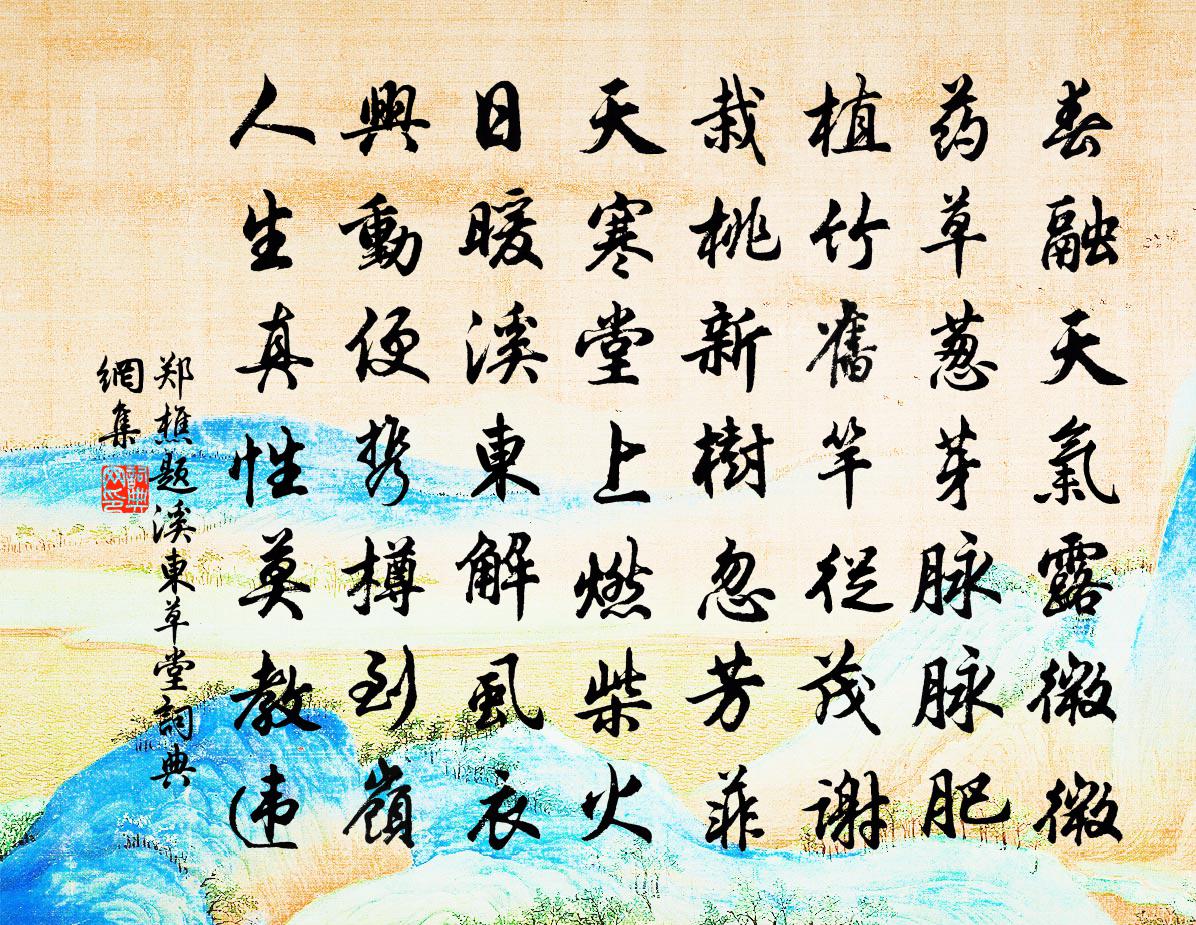 春融天氣露微微
药草葱芽脉脉肥
植竹舊竿從茂謝
栽桃新樹忽芳菲
天寒堂上燃柴火
日暖溪東解虱衣
興動便携樽到嶺
人生真性莫教违
郑樵题溪東草堂詞典
網集
詞典